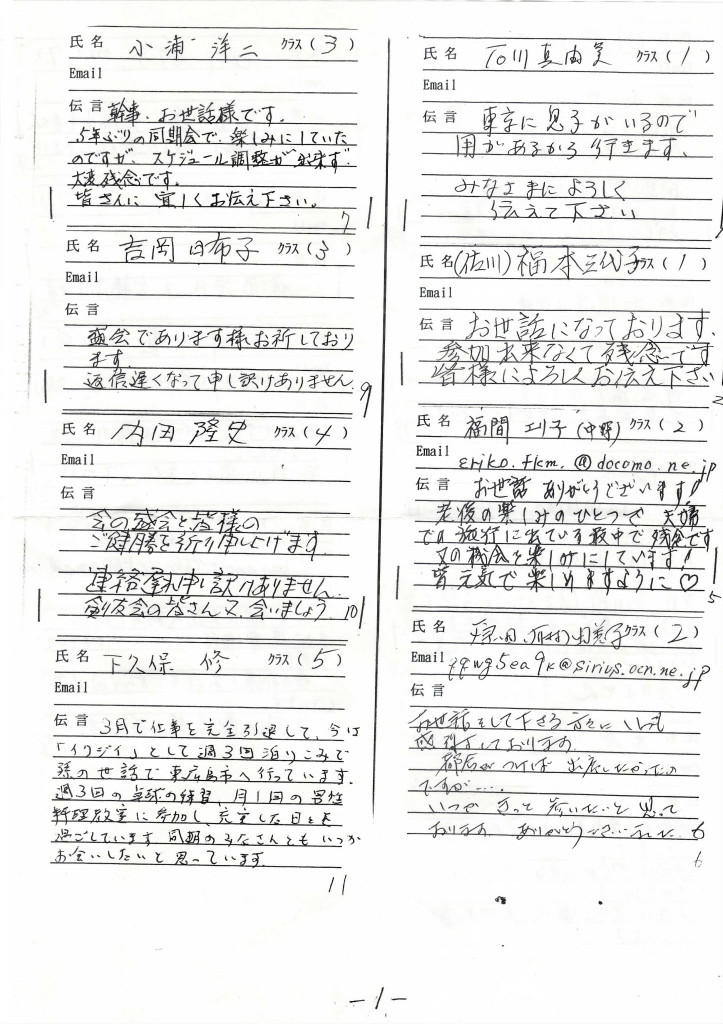 氏名 小浦 洋二 クラス(3)
Email
伝言 幹事、お世話様です。
5年ぶりの同期会で、楽しみにしていた
のですが、スケジュール調整が出来ず、
大変残念です。
皆さんに宜しくお伝え下さい。
7
氏名 吉岡 由布子 クラス(3)
Email
伝言
盛会であります様お祈しており
ます。
返信遅くなって申し訳けありません。
9
氏名 内田 隆史 クラス(4)
Email
伝言
会の盛会と皆様の
ご健勝を祈り申し上げます
連絡遅れ申し訳けありません。
剣友会の皆さん又、会いましょう。
10
氏名 下久保 修 クラス(5)
Email
伝言 3月で仕事を完全引退して、今は
「イクジイ」として週3回泊りこみで
孫の世話で東広島市へ行っています。
週3回の卓球の練習、月1回の男性
料理教室に参加し、充実した日を
過ごしています。同期のみなさんともいつか
お会いしたいと思っています。
11
氏名 石川 真由美 クラス(1)
Email
伝言 東京に息子がいるので
用があるから行きます、
みなさまによろしく
伝えて下さい
氏名 (佐川) 福本三代子 クラス(1)
Email
伝言 お世話になっております。
参加出来なくて残念です
皆様によろしくお伝え下さい
2
氏名 福間 エリ子 (中野) クラス(2)
Email eriko.fkm.@docomo.ne.jp
伝言 お世話ありがとうございます!
老後の楽しみのひとつで 夫婦
での旅行に出ている最中で残念です
又の機会を楽しみにしています!
皆元気で楽しめますように♡
5
氏名 クラス(2)
Email qqwg5ea9k@sirius.ocn.ne.jp
伝言
お世話をして下さる方々にいつも
感謝しております。
都合がつけば 出席したかったの
ですが……
いつか きっと 参いたいと思って
おります。ありがとうございました。
6
-1-